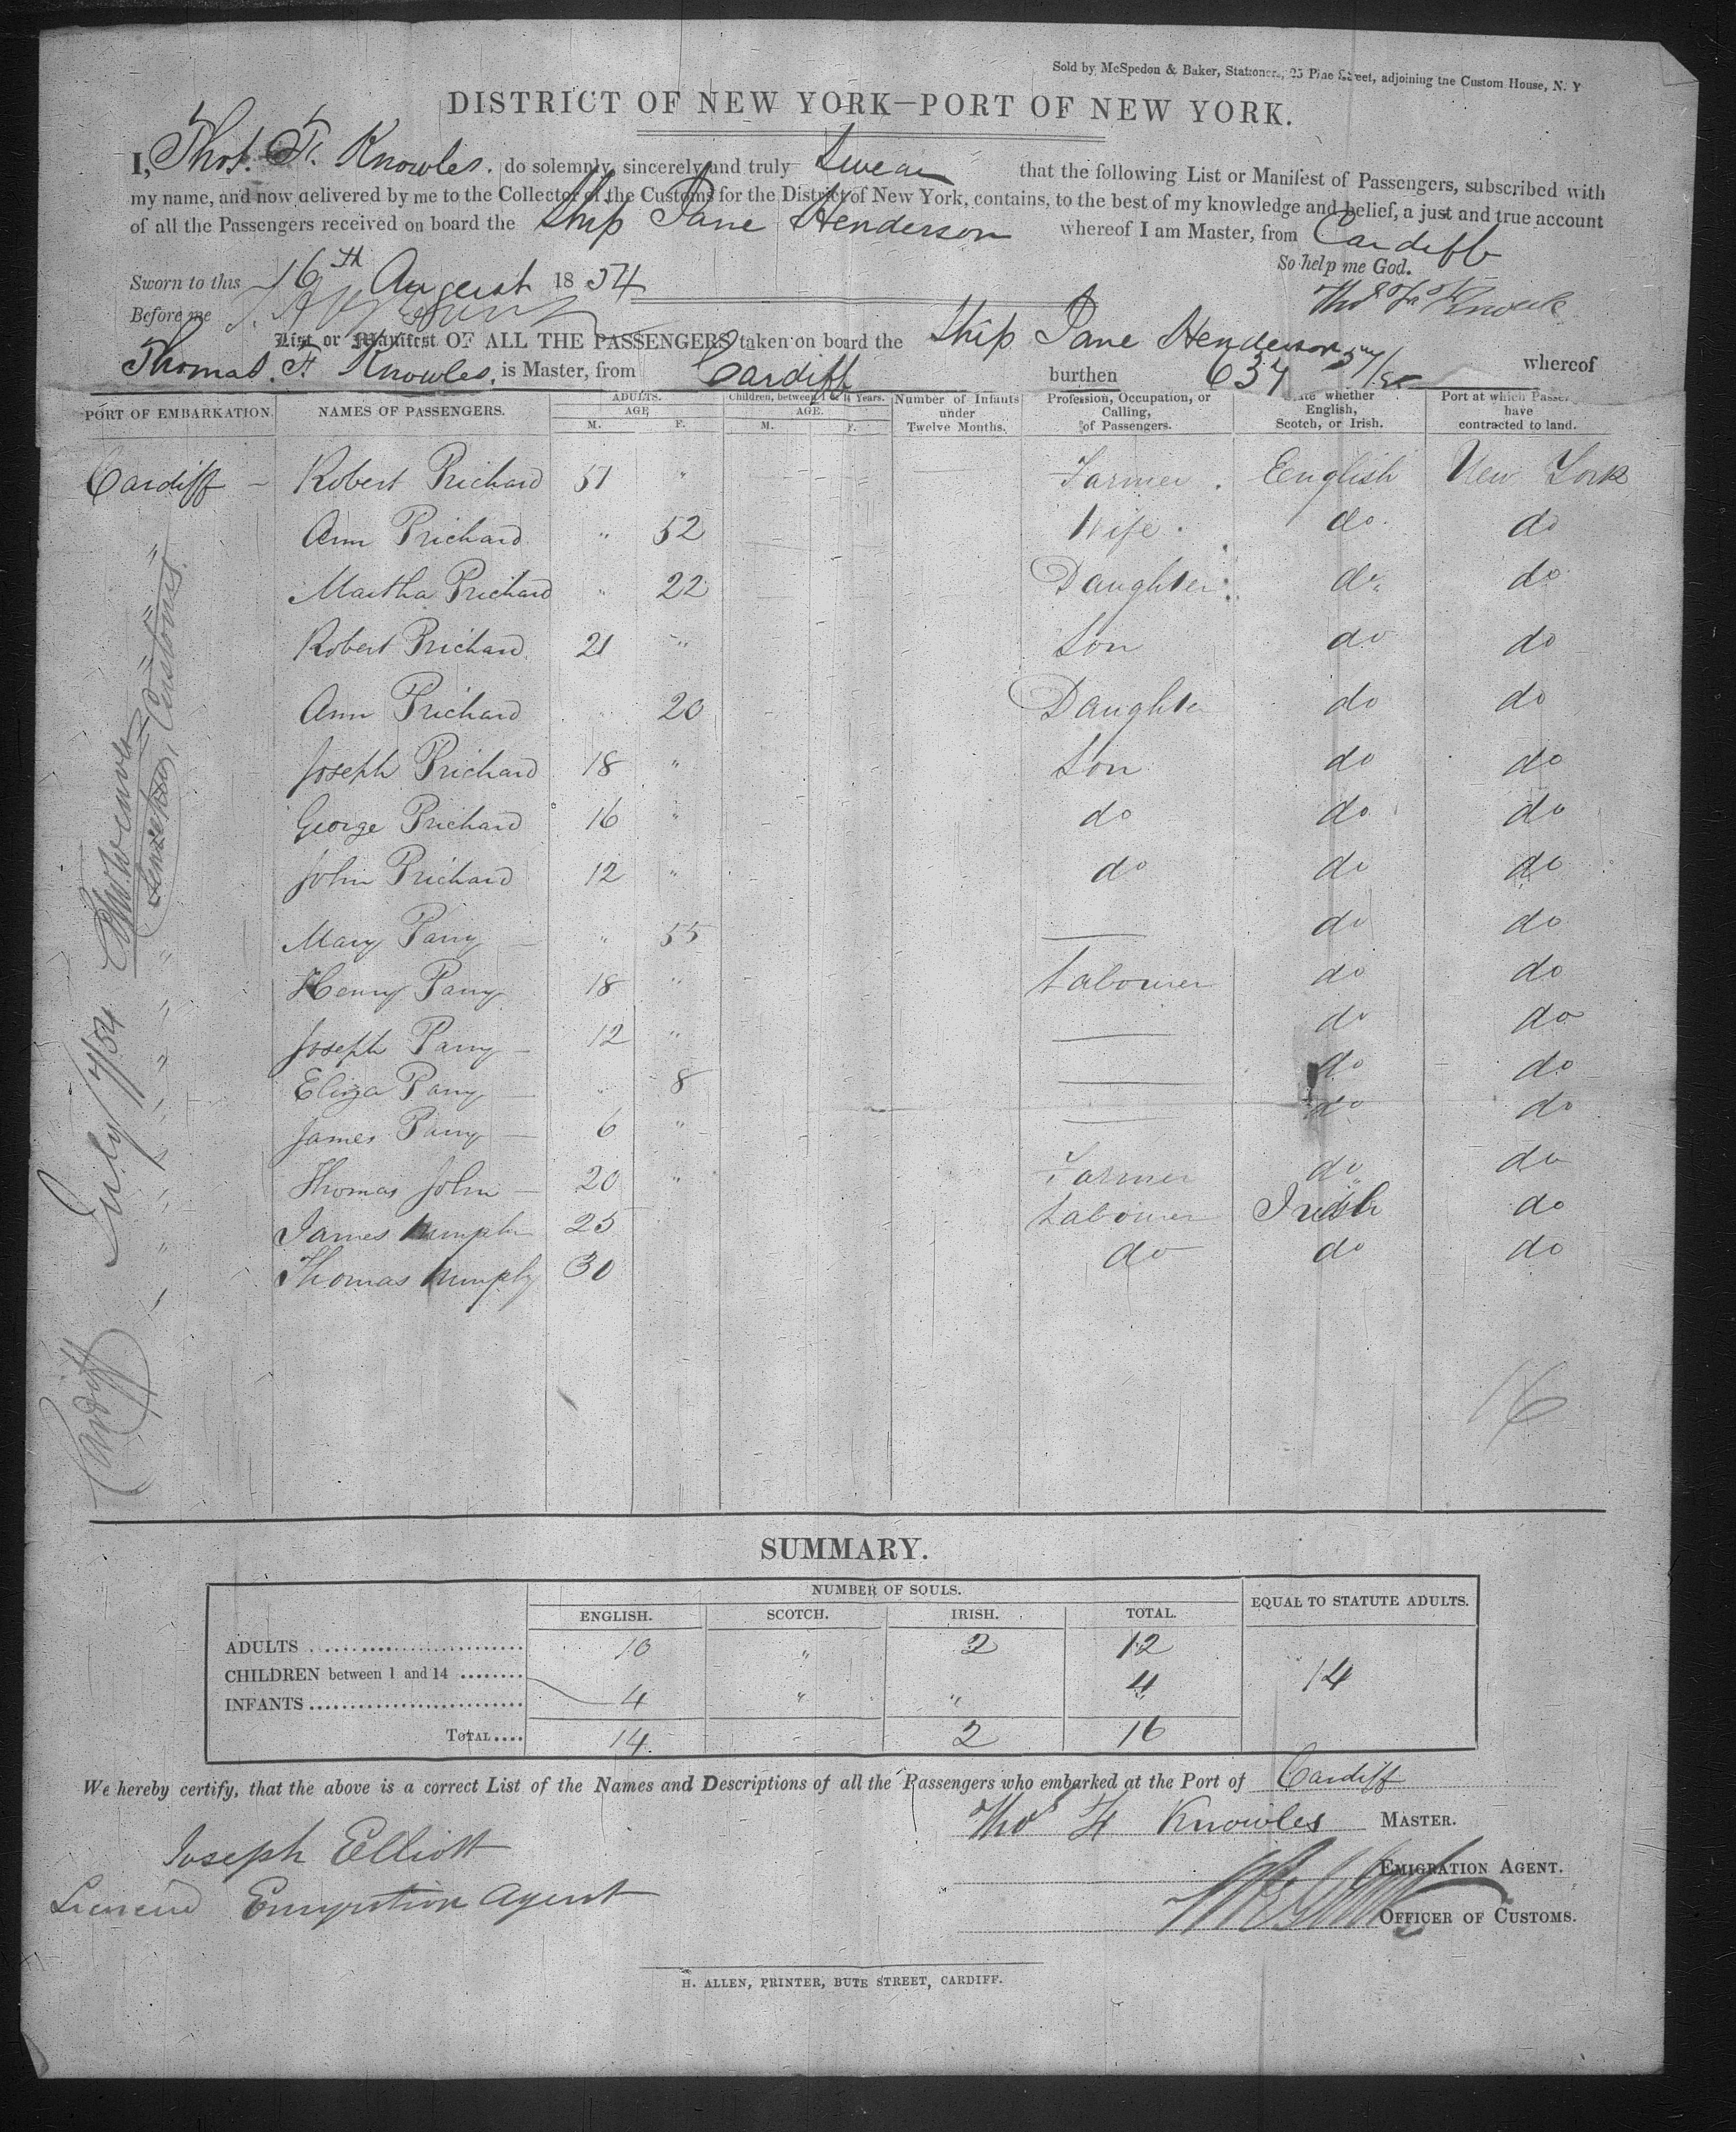 Sold by McSpedon & Baker, Stationers, 25 Pine Street, adjoining the Custom House, N. Y
DISTRICT OF NEW YORK—PORT OF NEW YORK.
I, Thos. F. Knowles. do solemnly, sincerely and truly Swear that the following List or Manifest of Passengers, subscribed with
my name, and now delivered by me to the Collector of the Customs for the District of New York, contains, to the best of my knowledge and belief, a just and true account
of all the Passengers received on board the Ship Jane Henderson whereof I am Master, from Cardiff
So help me God.
Sworn to this 16th August 1854
Thos F Knowles
Before me
List or Manifest OF ALL THE PASSENGERS taken on board the Ship Jane Henderson whereof
Thomas. F. Knowles. is Master, from Cardiff burthen 637
PORT OF EMBARKATION. NAMES OF PASSENGERS. ADULTS. AGE M. F. Children, between 1 & 14 Years. AGE. M. F. Number of Infants under Twelve Months. Profession, Occupation, or Calling, of Passengers. State whether English, Scotch, or Irish. Port at which Passe. have contracted to land.
Cardiff – Robert Prichard 51 " Farmer. English New York
" Ann Prichard " 52 Wife. do do
" Martha Prichard " 22 Daughter do do
" Robert Prichard 21 " Son do do
Ann Prichard " 20 Daughte do do
Joseph Prichard 18 " Son do do
George Prichard 16 " do do do
John Prichard 12 " do do do
" Mary Parry – " 55 — do do
" Henry Parry 18 " Labourer do do
" Joseph Parry – 12 " — do do
" Eliza Parry – " 8 — do do
" James Parry – 6 " — do do
" Thomas John – 20 " Farmer do do
" James Murphy 25 Labourer Irish do
" Thomas Murphy 30 do do do
Customs.
July 7/54
Cardiff
16
SUMMARY.
NUMBER OF SOULS. EQUAL TO STATUTE ADULTS.
ENGLISH. SCOTCH. IRISH. TOTAL.
ADULTS 10 " 2 12
CHILDREN between 1 and 14 4 " " 4 14
INFANTS "
TOTAL 14 2 16
We hereby certify, that the above is a correct List of the Names and Descriptions of all the Passengers who embarked at the Port of Cardiff
Thos F Knowles MASTER.
Joseph Elliott
EMIGRATION AGENT.
Emigration Agent
OFFICER OF CUSTOMS.
H. ALLEN, PRINTER, BUTE STREET, CARDIFF.